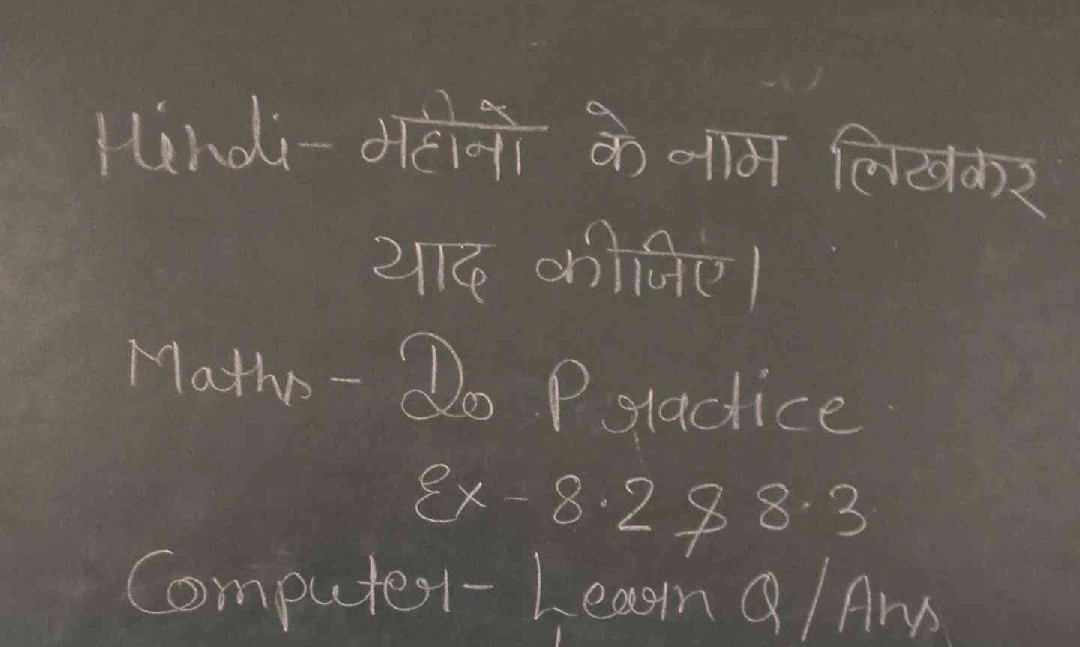 Hindi- महीनों के नाम लिखकर
याद कीजिएं।
Maths - Do Practice
Ex - 8.2 & 8.3
Computer - Learn Q/Ans